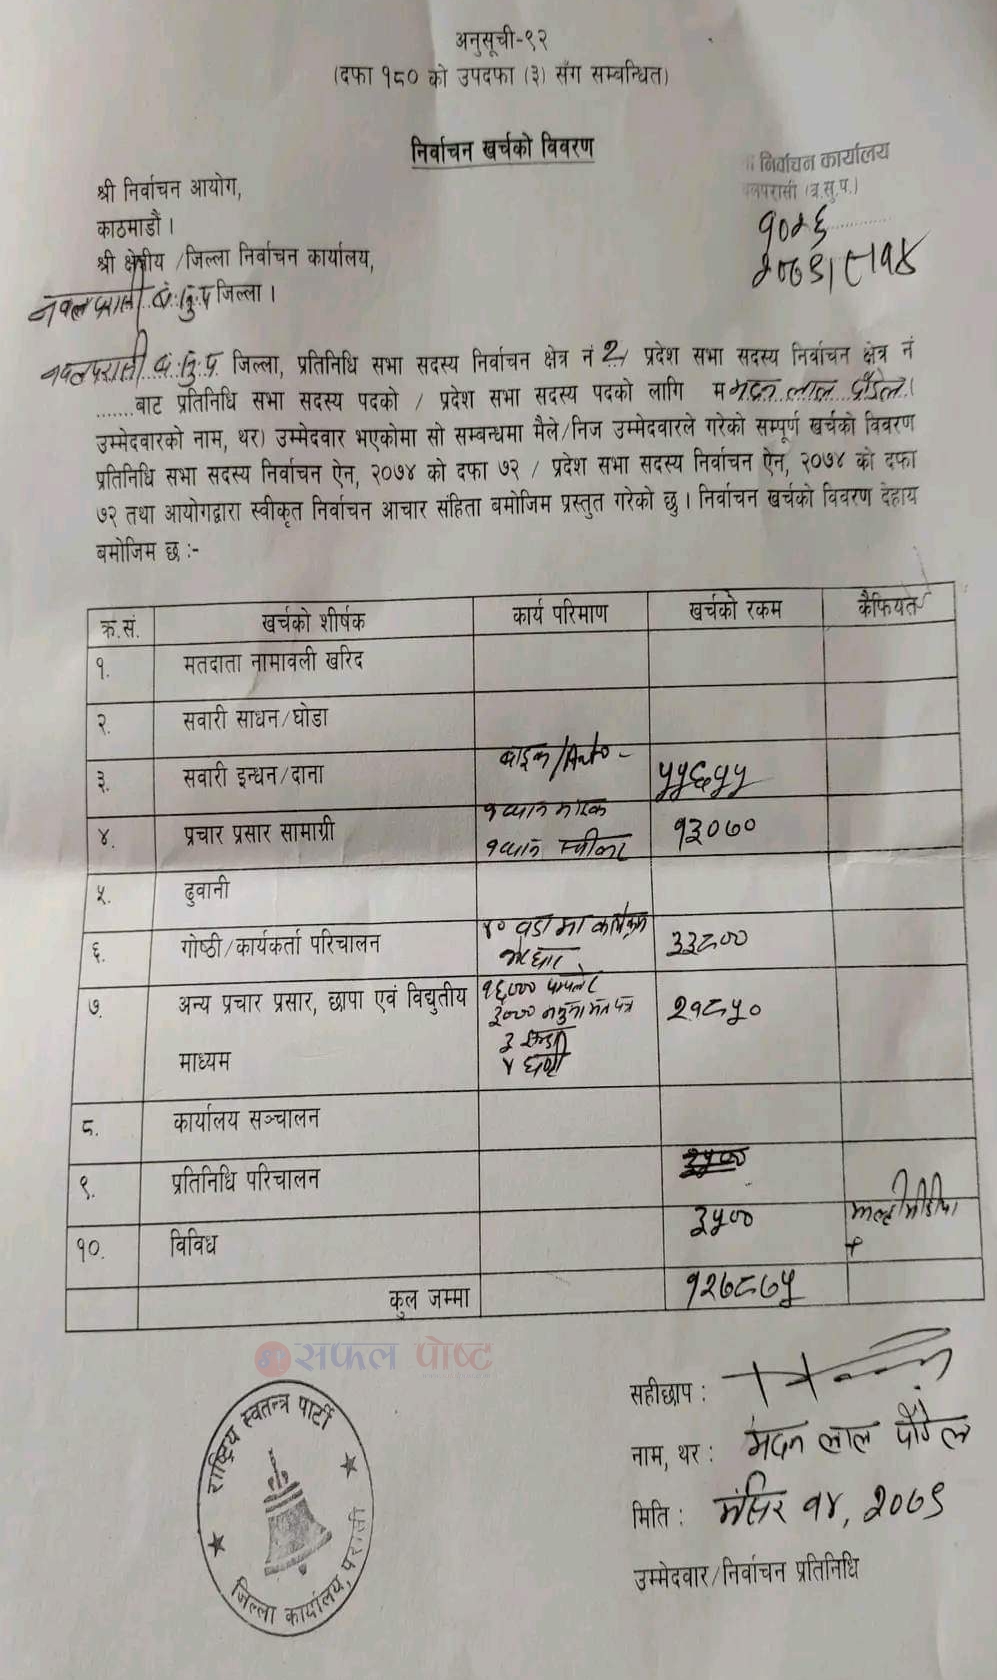 अनुसूची-१२
(दफा १८० को उपदफा (३) सँग सम्बन्धित)
निर्वाचन खर्चको विवरण
निर्वाचन कार्यालय
लपरासी (ब.सु.प.)
१०२६
२०७९।८।१४
श्री निर्वाचन आयोग,
काठमाडौं ।
श्री क्षेत्रीय /जिल्ला निर्वाचन कार्यालय,
नवलपरासी जिल्ला ।
नवलपरासी जिल्ला, प्रतिनिधि सभा सदस्य निर्वाचन क्षेत्र नं 2 प्रदेश सभा सदस्य निर्वाचन क्षेत्र नं
.......बाट प्रतिनिधि सभा सदस्य पदको / प्रदेश सभा सदस्य पदको लागि म मदन लाल पौडेल (
उम्मेदवारको नाम, थर) उम्मेदवार भएकोमा सो सम्बन्धमा मैले/निज उम्मेदवारले गरेको सम्पूर्ण खर्चको विवरण
प्रतिनिधि सभा सदस्य निर्वाचन ऐन, २०७४ को दफा ७२ / प्रदेश सभा सदस्य निर्वाचन ऐन, २०७४ को दफा
७२ तथा आयोगद्वारा स्वीकृत निर्वाचन आचार संहिता बमोजिम प्रस्तुत गरेको छु । निर्वाचन खर्चको विवरण देहाय
बमोजिम छ :-
क्र.सं. खर्चको शीर्षक कार्य परिमाण खर्चको रकम कैफियत
१. मतदाता नामावली खरिद
२. सवारी साधन/घोडा
३. सवारी इन्धन/दाना बाइक/Auto - ५५६५५
४. प्रचार प्रसार सामाग्री १३०७०
५. ढुवानी
६. गोष्ठी/कार्यकर्ता परिचालन ४० वडा मा कार्यक्रम ३३८००
७. अन्य प्रचार प्रसार, छापा एवं विद्युतीय १६००० पम्पलेट २१८५०
३००० नमुना मत पत्र
माध्यम
४ घण्टी
८. कार्यालय सञ्चालन
९. प्रतिनिधि परिचालन
१०. विविध ३५०० मल्टीमीडिया
कुल जम्मा १२७८७५
सफल पोष्ट
राष्ट्रिय स्वतन्त्र पार्टी
जिल्ला कार्यालय, परासी
सहीछाप :
नाम, थर : मदन लाल पौडेल
मिति : मंसिर १४, २०७९
उम्मेदवार/निर्वाचन प्रतिनिधि